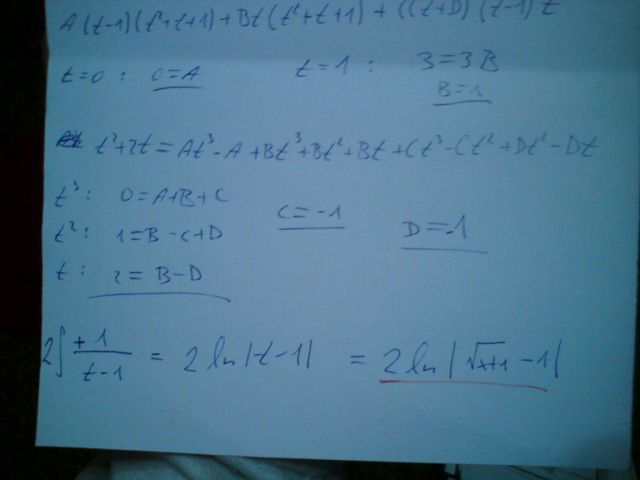 A(t-1)(t²+t+1)+Bt(t²+t+1)+(Ct+D)(t-1)t
t=0: 0=A t=1: 3=3B
B=1
t²+2t=At³-A+Bt³+Bt²+Bt+Ct³-Ct²+Dt²-Dt
t³: 0=A+B+C
C=-1 D=-1
t²: 1=B-C+D
t: 2=B-D
2∫ +1/(t-1) = 2 ln|t-1| = 2 ln|√x+1 -1|